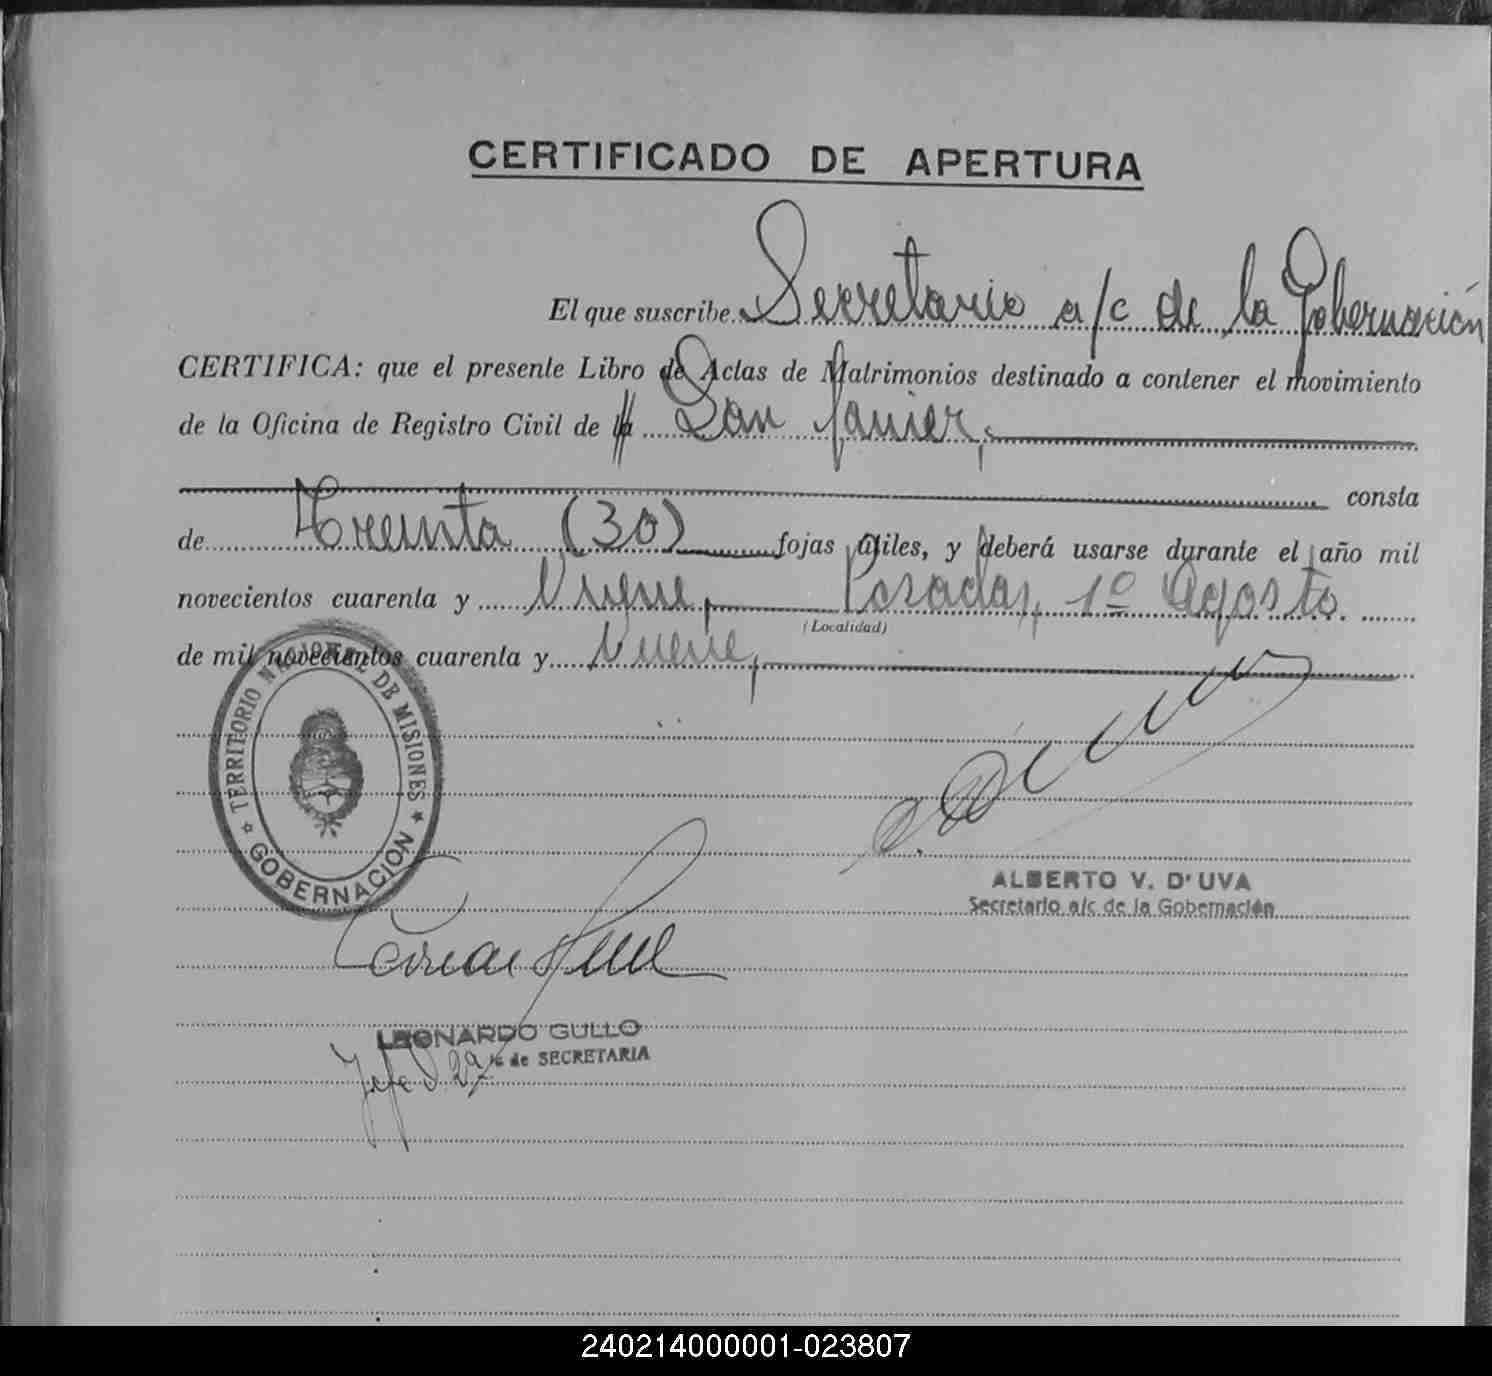 CERTIFICADO DE APERTURA
El que suscribe Secretario a/c de la Gobernación
CERTIFICA: que el presente Libro de Actas de Matrimonios destinado a contener el movimiento
de la Oficina de Registro Civil de la San Javier,
consta
de Treinta (30) fojas útiles, y deberá usarse durante el año mil
novecientos cuarenta y Nueve, Posadas, 1º Agosto
(Localidad)
de mil novecientos cuarenta y Nueve,
TERRITORIO NACIONAL DE MISIONES
GOBERNACION
ALBERTO V. D'UVA
Secretario a/c de la Gobernación
LEONARDO GULLO
Jefe D. 2ª de SECRETARIA
240214000001-023807